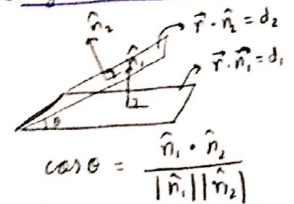 n̂₂
r⃗ · n̂₂ = d₂
n̂₁
r⃗ · n⃗₁ = d₁
θ
cos θ = n̂₁ · n̂₂ / |n̂₁| |n̂₂|